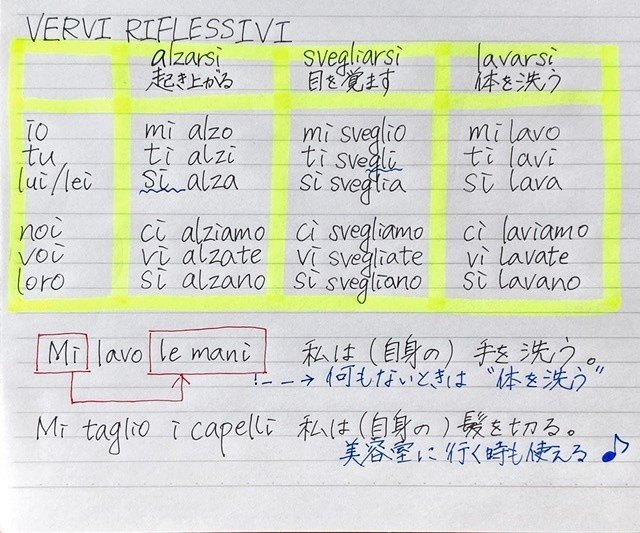 VERVI RIFLESSIVI
alzarsi svegliarsi lavarsi
起き上がる 目を覚ます 体を洗う
io mi alzo mi sveglio mi lavo
tu ti alzi ti svegli ti lavi
lui/lei si alza si sveglia si lava
noi ci alziamo ci svegliamo ci laviamo
voi vi alzate vi svegliate vi lavate
loro si alzano si svegliano si lavano
Mi lavo le mani 私は(自身の)手を洗う。
!--→ 何もないときは "体を洗う"
Mi taglio i capelli 私は(自身の)髪を切る。
美容室に行く時も使える♪